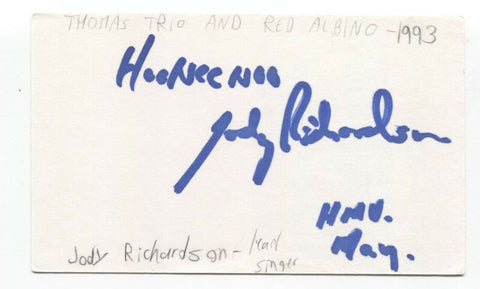 THOMAS TRIO AND RED ALBINO - 1993
HooNeeNoo
Jody Richardson
HMV.
May.
Jody Richardson - lead
singer